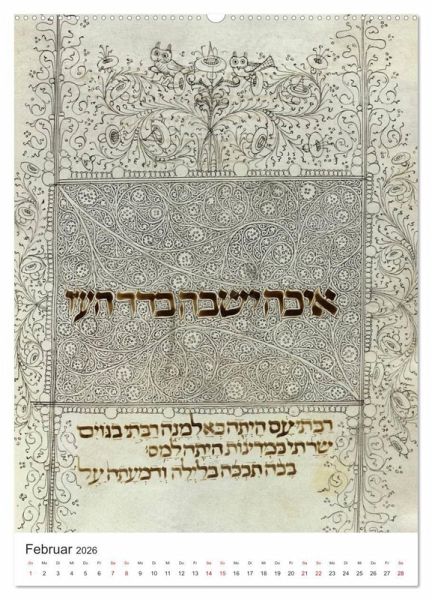 איכה ישבה בדד העי
רבתי עם היתה כאלמנה רבתי בגוים
שרתי במדינות היתה למס׃
בכה תבכה בלילה ודמעתה על
Februar 2026
So Mo Di Mi Do Fr Sa So Mo Di Mi Do Fr Sa So Mo Di Mi Do Fr Sa So Mo Di Mi Do Fr Sa
1 2 3 4 5 6 7 8 9 10 11 12 13 14 15 16 17 18 19 20 21 22 23 24 25 26 27 28